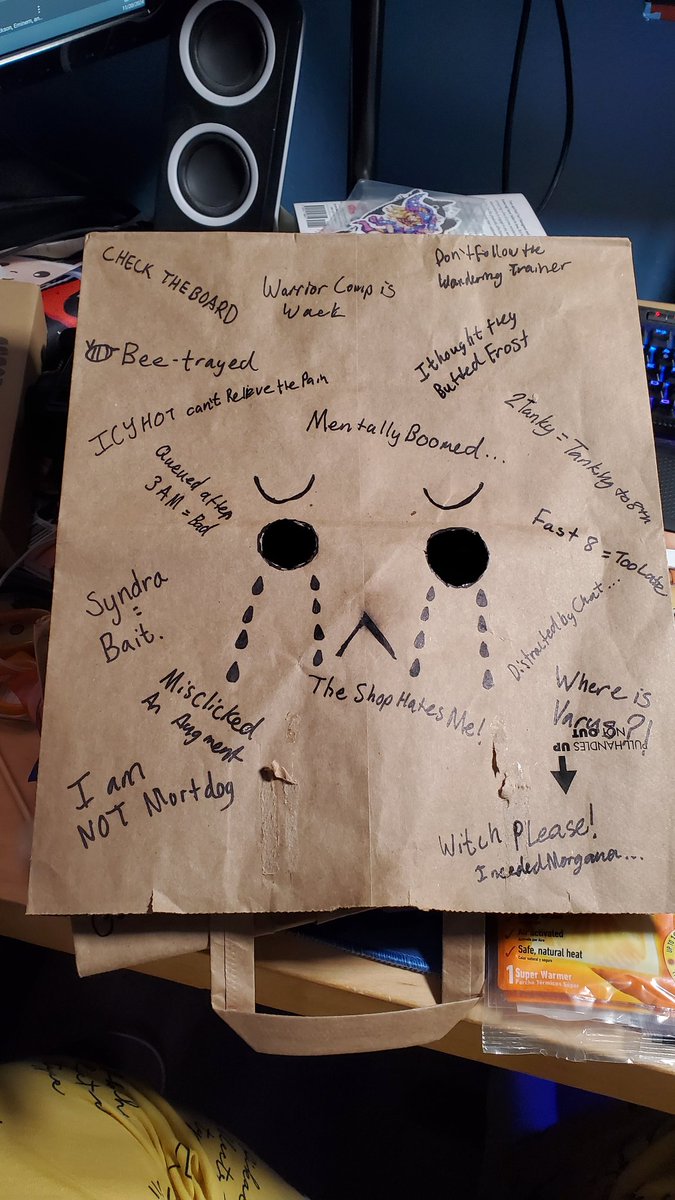 11/20/202
CHECK THE BOARD
Warrior Comp is
Wack
Don't follow the
Wandering Trainer
Bee-trayed
I thought they
Buffed Frost
ICYHOT can't Relieve the Pain
Mentally Boomed...
2Tanky = Tanking to 8th
Queued after
3 AM = Bad
Fast 8 = Too Late
Syndra
=
Bait.
Distracted by Chat...
Misclicked
An Augment
The Shop Hates Me!
Where is
Varus?!
PULL HANDLES UP
NOT OUT
I am
NOT Mortdog
Witch Please!
I needed Morgana...
Safe, natural heat
1 Super Warmer